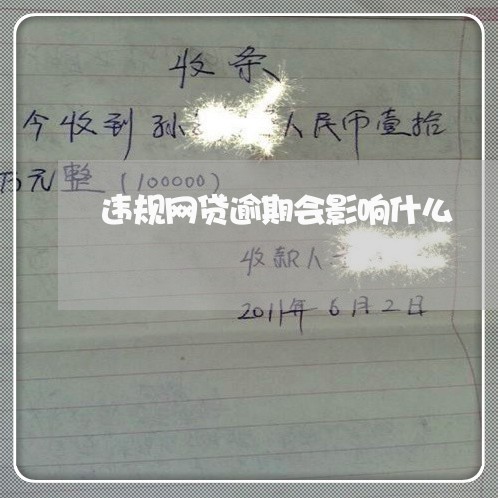 收条
今收到孙 人民币壹拾
万元整（100000）
违规网贷逾期会影响什么
收款人
2011年6月2日